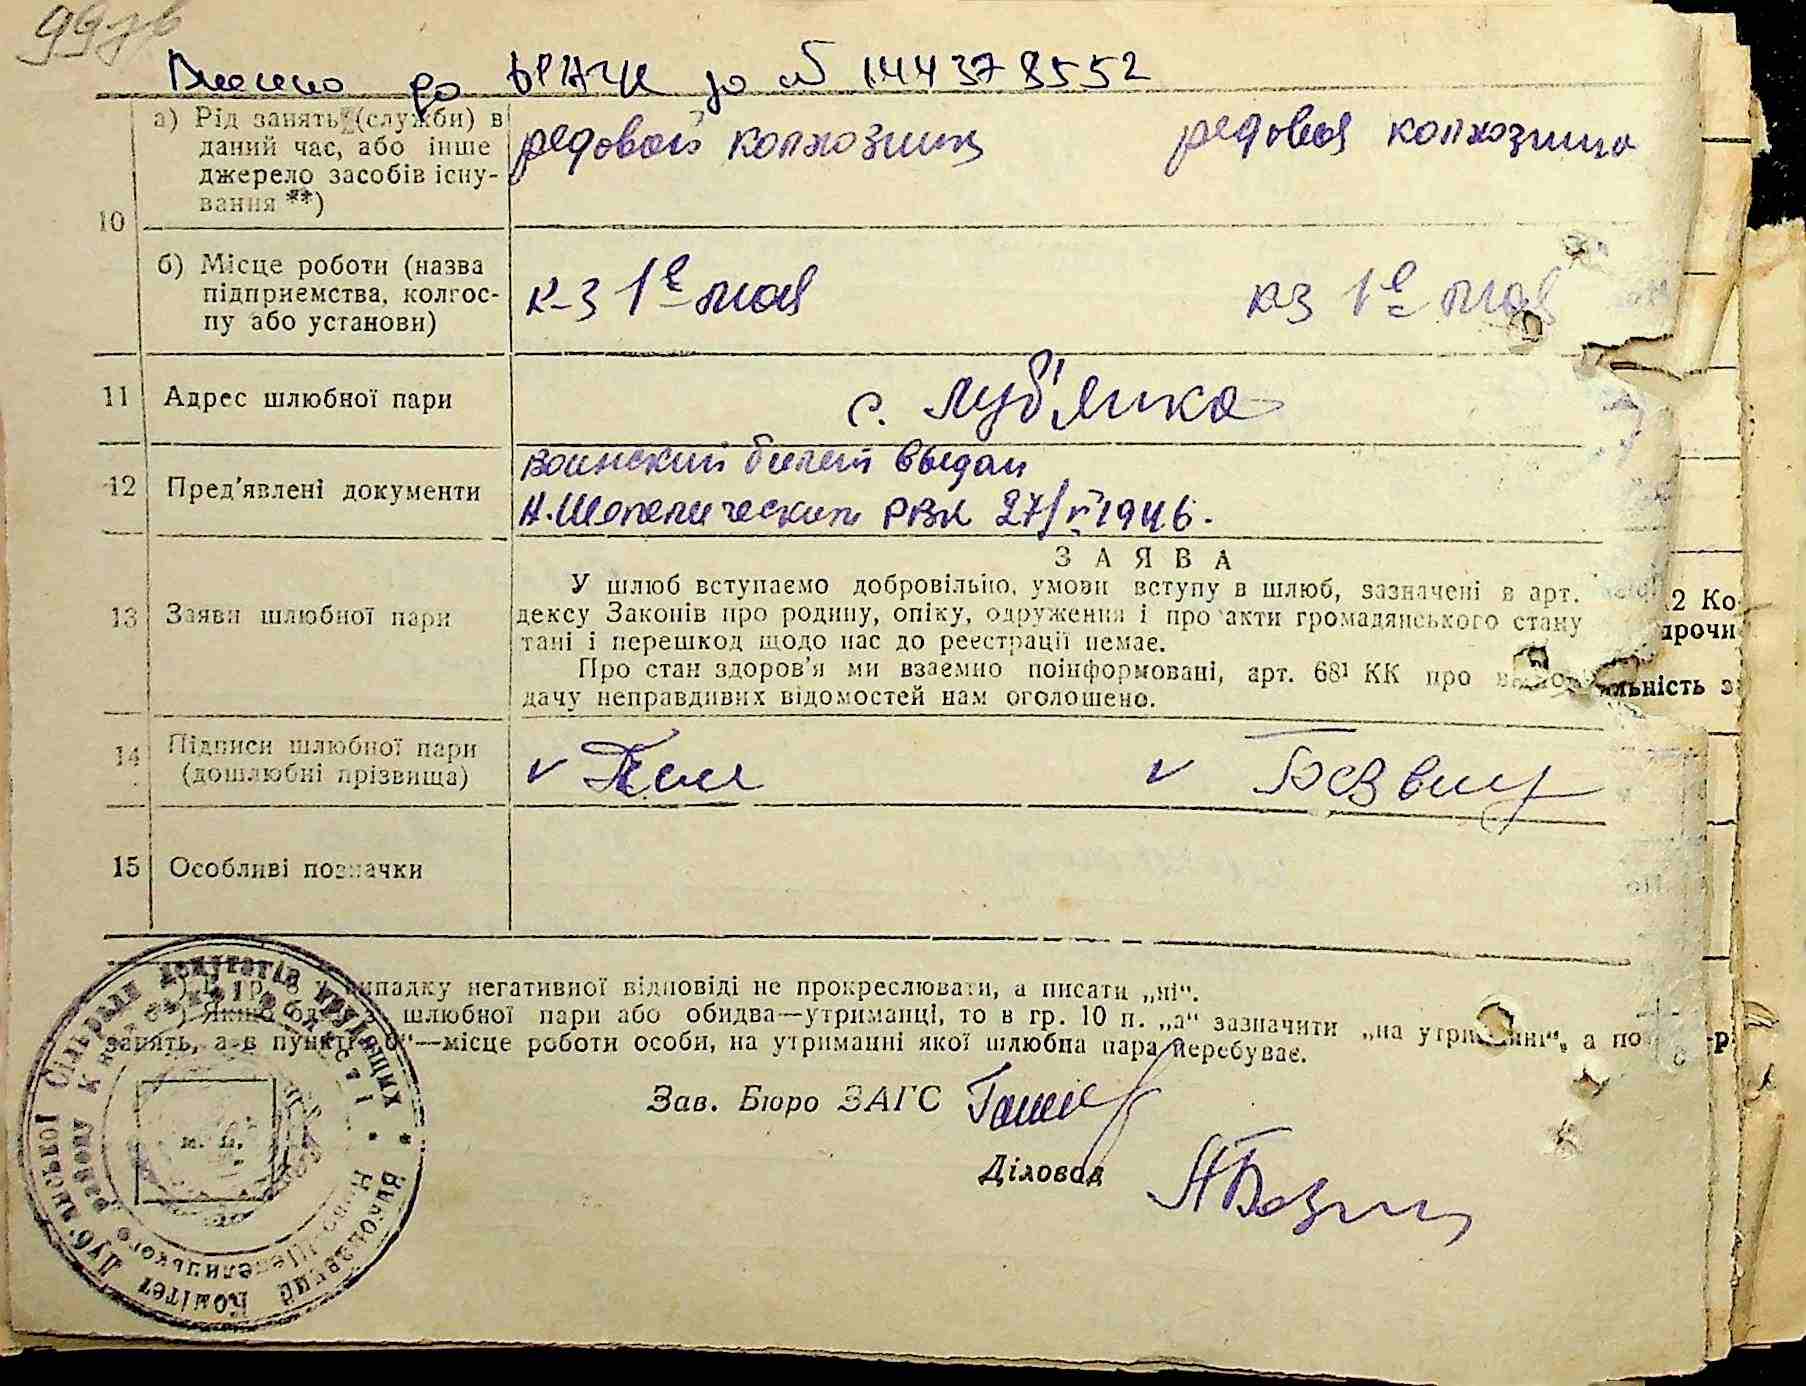 99зв
Внесено до ДРАЦС за № 144378552
10
а) Рід занять (служби) в
даний час, або інше
джерело засобів існу-
вання **)
редовой колхозник
редовая колхозница
б) Місце роботи (назва
підприємства, колгос-
пу або установи)
к-з 1е мая
кз 1е мая
11 Адрес шлюбної пари
с. Луб'янка
12 Пред'явлені документи
воинский билет выдан
Н.Шепелическим РВК 27/VI 1946.
13 Заяви шлюбної пари
ЗАЯВА
У шлюб вступаємо добровільно, умови вступу в шлюб, зазначені в арт. 2 Ко-
дексу Законів про родину, опіку, одруження і про акти громадянського стану
тані і перешкод щодо нас до реєстрації немає.
Про стан здоров'я ми взаємно поінформовані, арт. 68¹ КК про
дачу неправдивих відомостей нам оголошено.
14 Підписи шлюбної пари
(дошлюбні прізвища)
15 Особливі позначки
випадку негативної відповіді не прокреслювати, а писати „ні“.
Якщо шлюбної пари або обидва—утриманці, то в гр. 10 п. „а“ зазначити „на утриманні“, а по
занять, а в пункті „б“—місце роботи особи, на утриманні якої шлюбна пара перебуває.
Зав. Бюро ЗАГС
Діловод
Виконавчий Комітет Луб'янської Сільради депутатів трудящих
Ново-Шепелицького району Київської області
м. п.